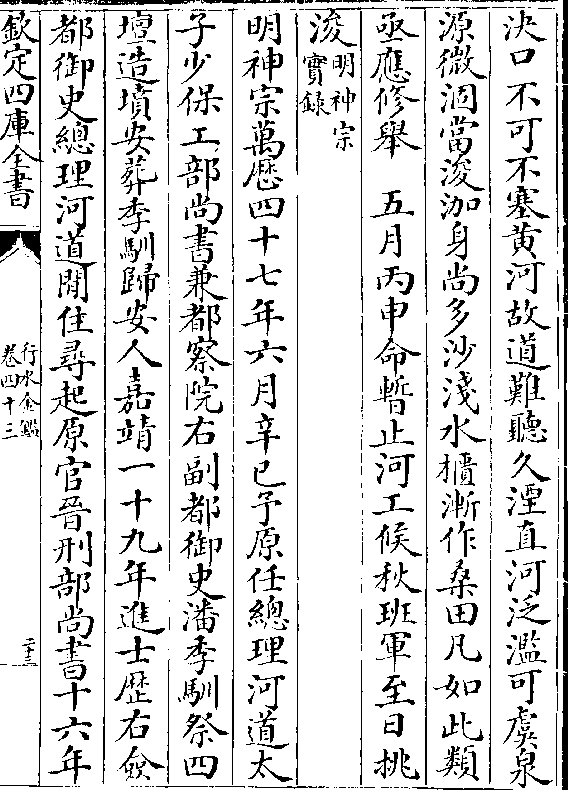 決口不可不塞黄河故道難聽久湮直河泛濫可虞泉
源微涸當浚泇身尚多沙淺水櫃漸作桑田凡如此類
亟應修舉　五月丙申命暫止河工候秋班軍至日挑
浚明神宗實錄
明神宗萬厯四十七年六月辛巳予原任總理河道太
子少保工部尚書兼都察院右副都御史潘季馴祭四
壇造墳安葬季馴歸安人嘉靖一十九年進士歴右僉
都御史總理河道閒住尋起原官晉刑部尚書十六年
欽定四庫全書
行水金鑑
卷四十三
二十三